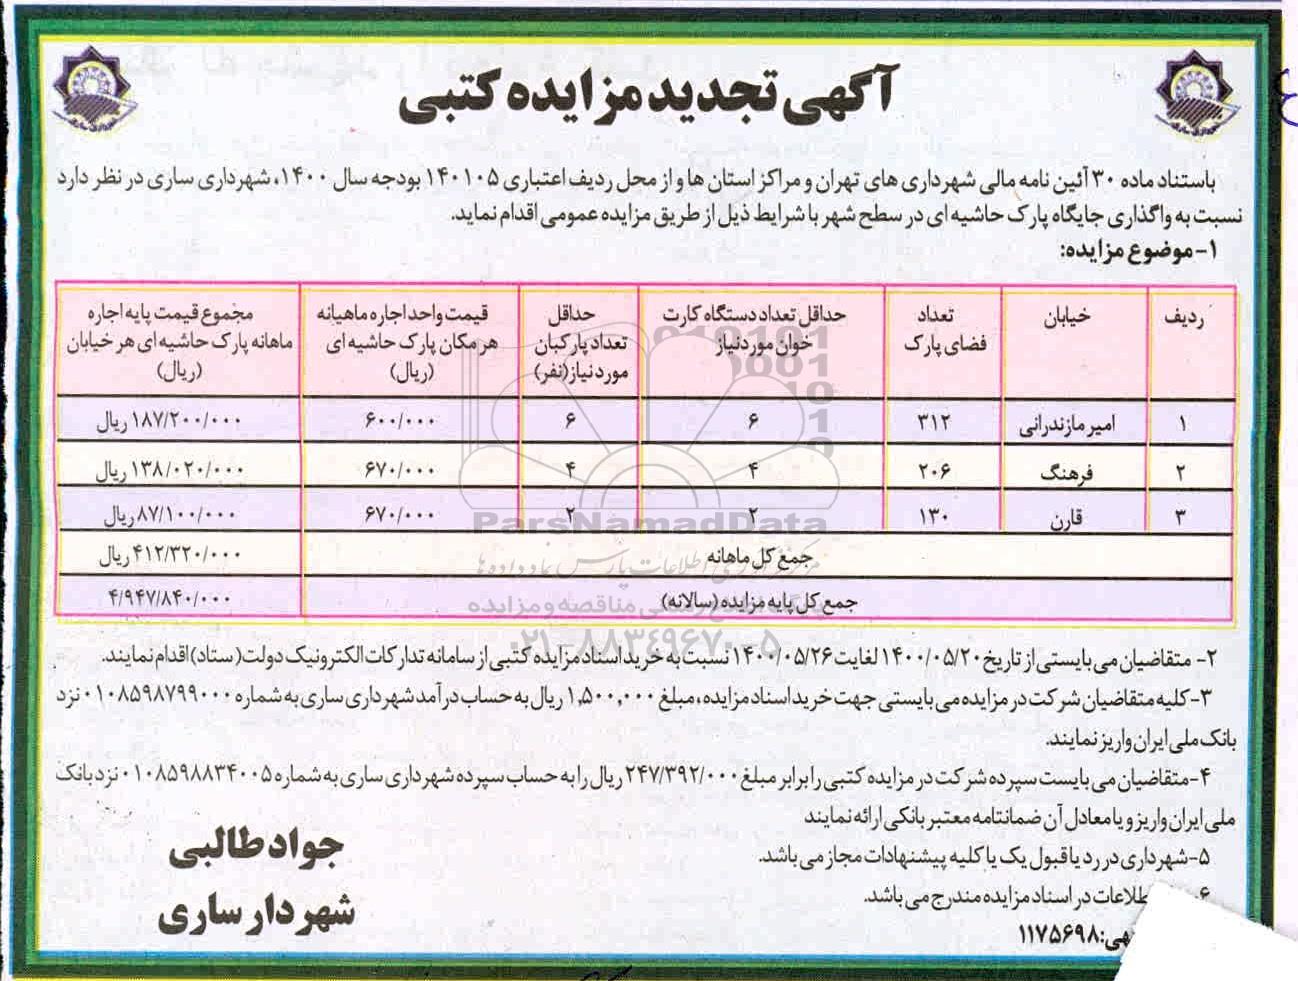 آگهی تجدید مزایده کتبی
باستناد ماده ۳۰ آئین نامه مالی شهرداری های تهران و مراکز استان ها و از محل ردیف اعتباری ۱۴۰۱۰۵ بودجه سال ۱۴۰۰، شهرداری ساری در نظر دارد
نسبت به واگذاری جایگاه پارک حاشیه ای در سطح شهر با شرایط ذیل از طریق مزایده عمومی اقدام نماید.
۱- موضوع مزایده:
ردیف | خیابان | تعداد فضای پارک | حداقل تعداد دستگاه کارت خوان مورد نیاز | حداقل تعداد پارکبان مورد نیاز(نفر) | قیمت واحد اجاره ماهیانه هر مکان پارک حاشیه ای (ریال) | مجموع قیمت پایه اجاره ماهانه پارک حاشیه ای هر خیابان (ریال)
۱ | امیر مازندرانی | ۳۱۲ | ۶ | ۶ | ۶۰۰/۰۰۰ | ۱۸۷/۲۰۰/۰۰۰ ریال
۲ | فرهنگ | ۲۰۶ | ۴ | ۴ | ۶۷۰/۰۰۰ | ۱۳۸/۰۲۰/۰۰۰ ریال
۳ | قارن | ۱۳۰ | ۲ | ۲ | ۶۷۰/۰۰۰ | ۸۷/۱۰۰/۰۰۰ ریال
جمع کل ماهانه | ۴۱۲/۳۲۰/۰۰۰ ریال
جمع کل پایه مزایده (سالانه) | ۴/۹۴۷/۸۴۰/۰۰۰
ParsNamadData
۰۲۱-۸۸۳۴۹۶۷۰-۵
۲- متقاضیان می بایستی از تاریخ ۱۴۰۰/۰۵/۲۰ لغایت ۱۴۰۰/۰۵/۲۶ نسبت به خرید اسناد مزایده کتبی از سامانه تدارکات الکترونیک دولت (ستاد) اقدام نمایند.
۳- کلیه متقاضیان شرکت در مزایده می بایستی جهت خرید اسناد مزایده، مبلغ ۱,۵۰۰,۰۰۰ ریال به حساب درآمد شهرداری ساری به شماره ۰۱۰۸۵۹۸۷۹۹۰۰۰ نزد
بانک ملی ایران واریز نمایند.
۴- متقاضیان می بایست سپرده شرکت در مزایده کتبی را برابر مبلغ ۲۴۷/۳۹۲/۰۰۰ ریال را به حساب سپرده شهرداری ساری به شماره ۰۱۰۸۵۹۸۸۳۴۰۰۵ نزد بانک
ملی ایران واریز و یا معادل آن ضمانتنامه معتبر بانکی ارائه نمایند
۵- شهرداری در رد یا قبول یک یا کلیه پیشنهادات مجاز می باشد.
طلاعات در اسناد مزایده مندرج می باشد.
هی: ۱۱۷۵۶۹۸
جواد طالبی
شهردار ساری